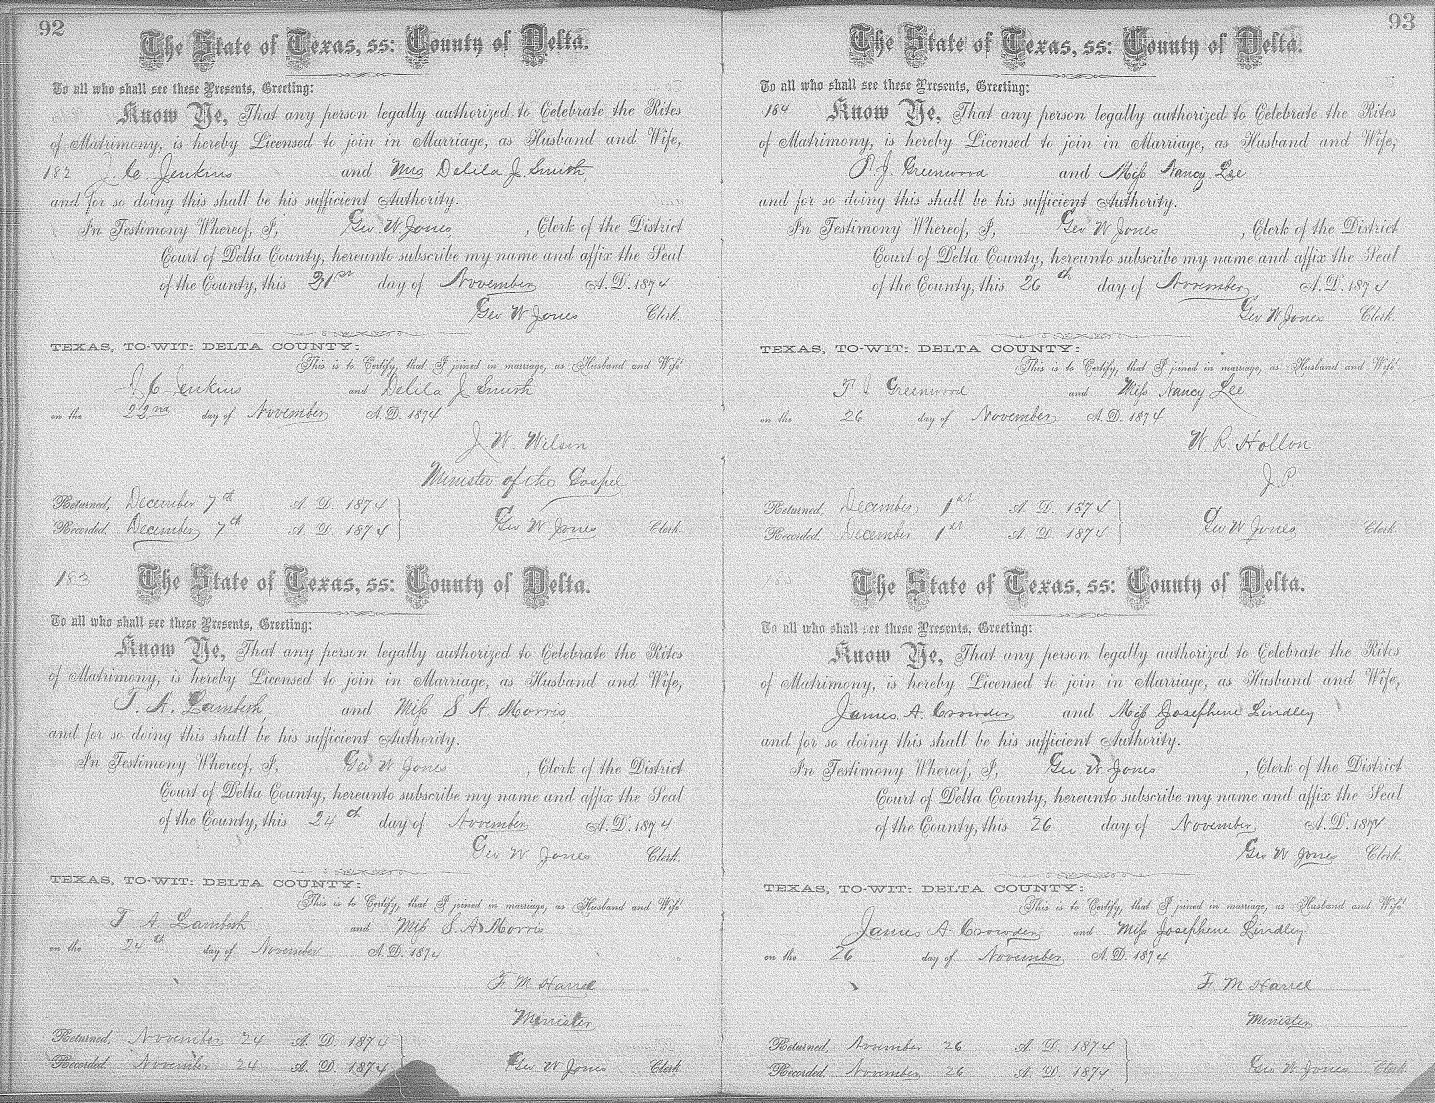 92
The State of Texas, ss: County of Delta.
To all who shall see these Presents, Greeting:
Know Ye, That any person legally authorized to Celebrate the Rites
of Matrimony, is hereby Licensed to join in Marriage, as Husband and Wife,
182 J. C. Jenkins and Mrs Delila J Smith
and for so doing this shall be his sufficient Authority.
In Testimony Whereof, I, Geo W Jones, Clerk of the District
Court of Delta County, hereunto subscribe my name and affix the Seal
of the County, this 21st day of November A. D. 1874
Geo W Jones Clerk.
TEXAS, TO-WIT: DELTA COUNTY:
This is to Certify, that I joined in marriage, as Husband and Wife
J. C. Jenkins and Delila J Smith
on the 22nd day of November A. D. 1874
J W Wilson
Minister of the Gospel
Returned, December 7th A. D. 1874
Recorded. December 7th A. D. 1874 Geo W Jones Clerk
183 The State of Texas, ss: County of Delta.
To all who shall see these Presents, Greeting:
Know Ye, That any person legally authorized to Celebrate the Rites
of Matrimony, is hereby Licensed to join in Marriage, as Husband and Wife,
T. A. Lambeth and Miss S A Morris
and for so doing this shall be his sufficient Authority.
In Testimony Whereof, I, Geo W Jones, Clerk of the District
Court of Delta County, hereunto subscribe my name and affix the Seal
of the County, this 24th day of November A. D. 1874
Geo W Jones Clerk.
TEXAS, TO-WIT: DELTA COUNTY:
This is to Certify, that I joined in marriage, as Husband and Wife
T A Lambeth and Miss S A Morris
on the 24th day of November A. D. 1874
F M Harrel
Minister
Returned, November 24 A. D. 1874
Recorded. November 24 A. D. 1874 Geo W Jones Clerk
93
The State of Texas, ss: County of Delta.
To all who shall see these Presents, Greeting:
184 Know Ye, That any person legally authorized to Celebrate the Rites
of Matrimony, is hereby Licensed to join in Marriage, as Husband and Wife,
J. Greenwood and Miss Nancy Lee
and for so doing this shall be his sufficient Authority.
In Testimony Whereof, I, Geo W Jones, Clerk of the District
Court of Delta County, hereunto subscribe my name and affix the Seal
of the County, this 26th day of November A. D. 1874
Geo W Jones Clerk.
TEXAS, TO-WIT: DELTA COUNTY:
This is to Certify, that I joined in marriage, as Husband and Wife
Greenwood and Miss Nancy Lee
on the 26 day of November A. D. 1874
W. R. Hollon
J. P
Returned, December 1st A. D. 1874
Recorded. December 1st A. D. 1874 Geo W Jones Clerk
The State of Texas, ss: County of Delta.
To all who shall see these Presents, Greeting:
Know Ye, That any person legally authorized to Celebrate the Rites
of Matrimony, is hereby Licensed to join in Marriage, as Husband and Wife,
James A. Crowder and Miss Josephene Lindley
and for so doing this shall be his sufficient Authority.
In Testimony Whereof, I, Geo W Jones, Clerk of the District
Court of Delta County, hereunto subscribe my name and affix the Seal
of the County, this 26 day of November A. D. 1874
Geo W Jones Clerk.
TEXAS, TO-WIT: DELTA COUNTY:
This is to Certify, that I joined in marriage, as Husband and Wife
James A Crowder and Miss Josephene Lindley
on the 26 day of November A. D. 1874
F M Harrel
Minister
Returned, November 26 A. D. 1874
Recorded. November 26 A. D. 1874 Geo W Jones Clerk